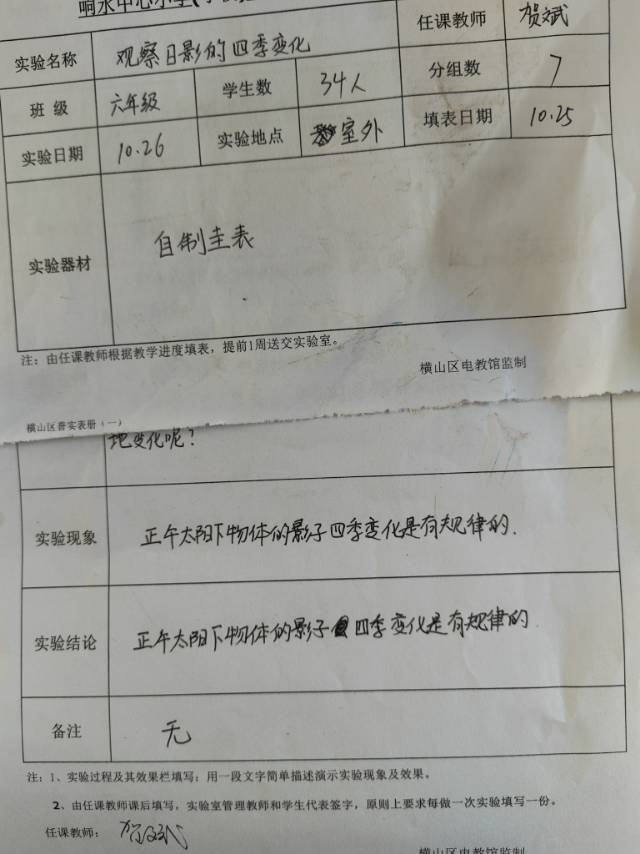 响水中心小学
任课教师 贺斌
实验名称 观察日影的四季变化
班 级 六年级 学生数 34人 分组数 7
实验日期 10.26 实验地点 室外 填表日期 10.25
实验器材 自制圭表
注：由任课教师根据教学进度填表，提前1周送交实验室。
横山区电教馆监制
横山区普实表册（一）
地变化呢？
实验现象 正午太阳下物体的影子四季变化是有规律的.
实验结论 正午太阳下物体的影子四季变化是有规律的
备注 无
注：1、实验过程及其效果栏填写：用一段文字简单描述演示实验现象及效果。
2、由任课教师课后填写，实验室管理教师和学生代表签字，原则上要求每做一次实验填写一份。
任课教师： 贺斌
横山区电教馆监制